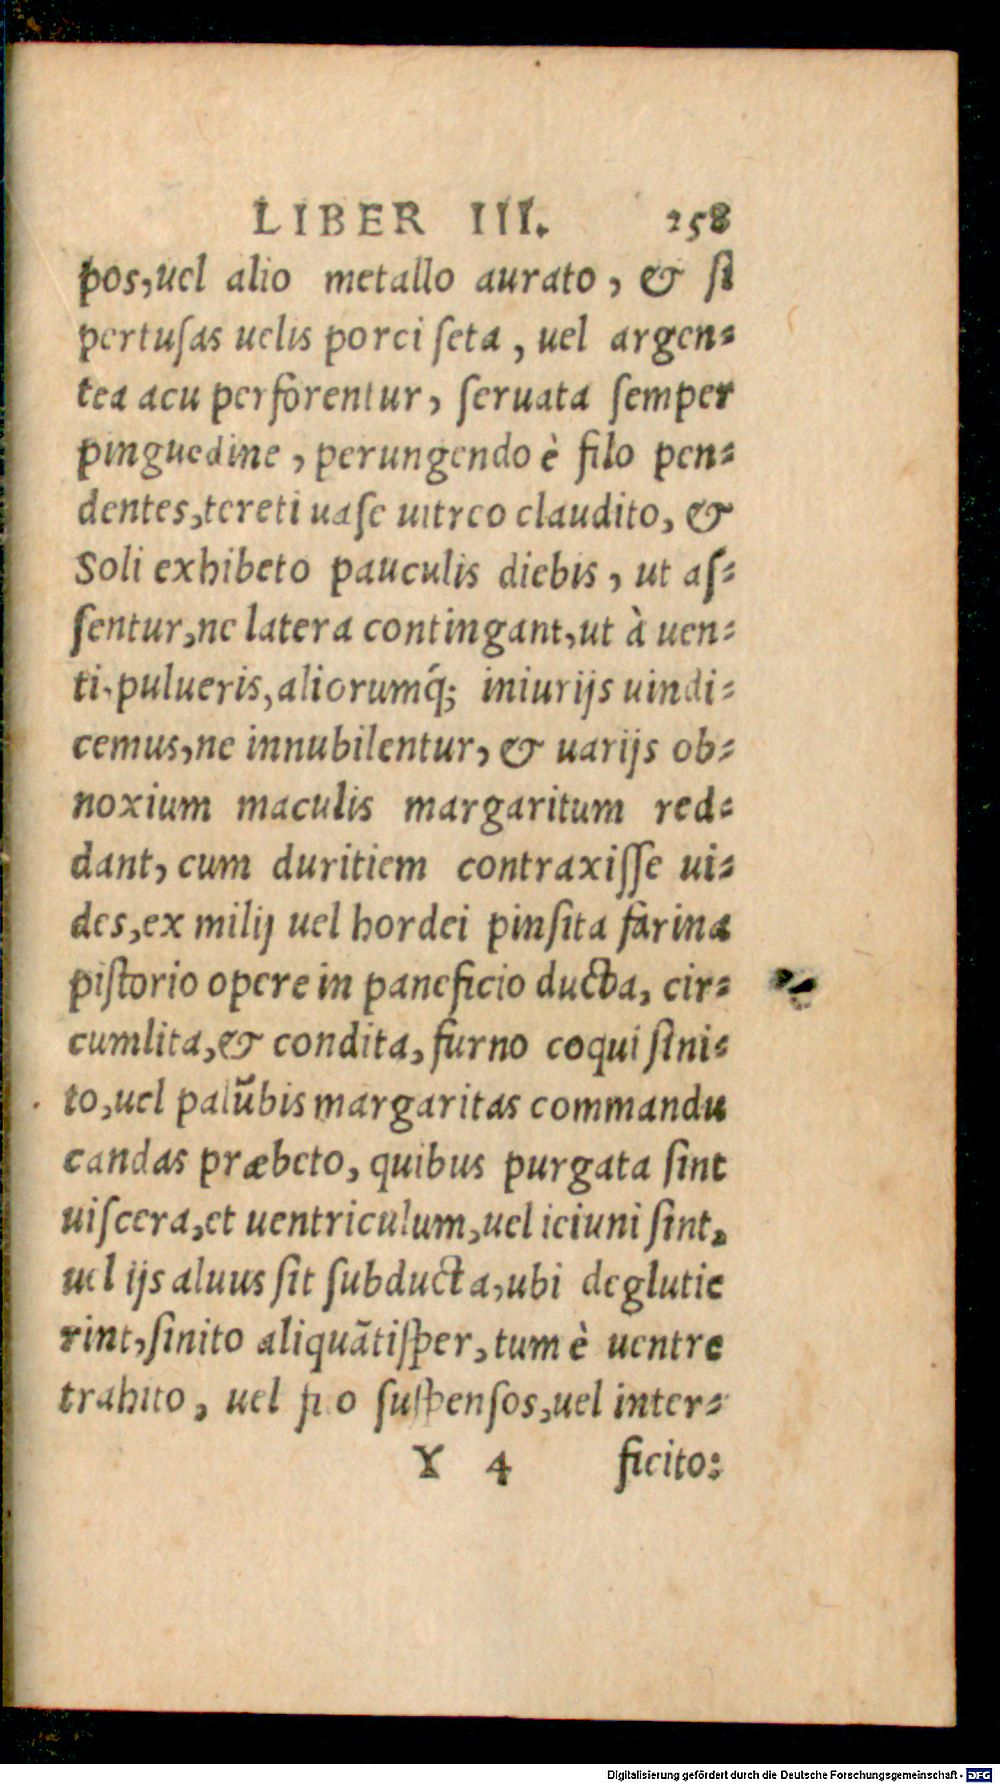 LIBER III. 258
pos,uel alio metallo aurato, & ſi
pertuſas uelis porci ſeta, uel argen⸗
tea acu perforentur, ſeruata ſemper
pinguedine, perungendo è filo pen⸗
dentes,tereti uaſe uitreo claudito, &
Soli exhibeto pauculis diebis, ut aſ⸗
ſentur,ne latera contingant,ut à uen⸗
ti,pulueris,aliorumq́; iniurijs uindi⸗
cemus,ne innubilentur, & uarijs ob⸗
noxium maculis margaritum red⸗
dant, cum duritiem contraxiſſe ui⸗
des,ex milij uel hordei pinſita farina
piſtorio opere in paneficio ducta, cir⸗
cumlita,& condita, furno coqui ſini⸗
to,uel palūbis margaritas commandu
candas præbeto, quibus purgata ſint
uiſcera,et uentriculum,uel ieiuni ſint,
uel ijs aluus ſit ſubducta,ubi deglutie
rint,ſinito aliquãtiſper, tum è uentre
trahito, uel ſuſpenſos,uel inter⸗
Y 4 ficito:
Digitalisierung gefördert durch die Deutsche Forschungsgemeinschaft - DFG